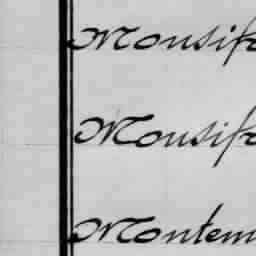 Monsif
Monsif
Montem